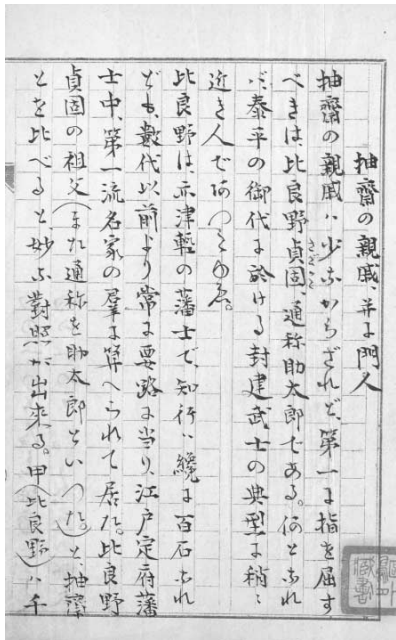 抽齋の親戚并に門人
抽齋の親戚ハ少なからざれど、第一に指を屈す
べきは、比良野貞固通称助太郎である。何となれ
さだかた
バ泰平の御代に於ける封建武士の典型に稍々
近き人であつたゆゑ。
比良野は、亦津軽の藩士で、知行ハ纔に百石なれ
ども、数代以前より常に要路に当り、江戸定府藩
士中、第一流名家の羣に算へられて居た。比良野
貞固の祖父(また通称を助太郎といつた)と、抽齋
とを比べると、妙な對照が出来る。甲(比良野)ハ千